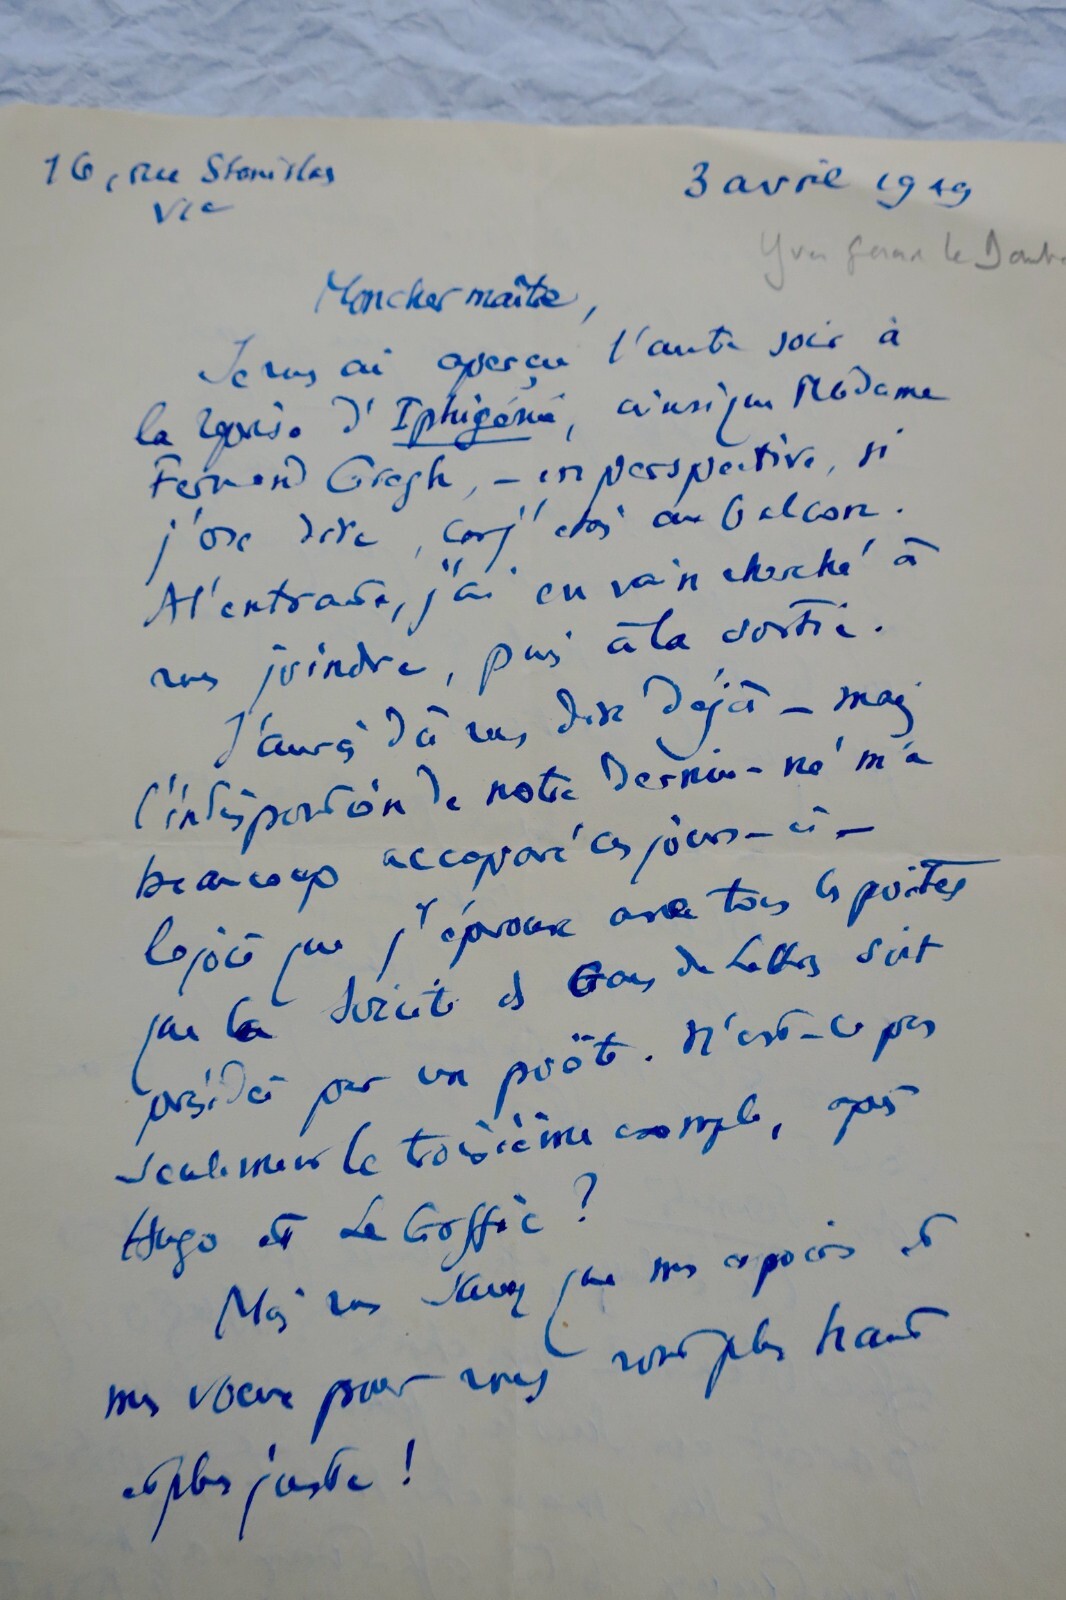 16, rue Stanislas
VIe
3 avril 1949
Yves Gérard le Dantec
Mon cher maître,
Je vous ai aperçu l'autre soir à
la reprise d'Iphigénie, ainsi que Madame
Fernand Gregh, – en perspective, si
j'ose dire, car j'étais au balcon.
A l'entracte, j'ai en vain cherché à
vous joindre, puis à la sortie.
J'aurais dû vous dire déjà – mais
l'indisposition de notre dernier-né m'a
beaucoup accaparé ces jours-ci –
la joie que j'éprouve avec tous les poètes
que la Société des Gens de Lettres soit
présidée par un poète. N'est-ce pas
seulement le troisième exemple, après
Hugo et Le Goffic ?
Mais vous savez que mes espoirs et
mes vœux pour vous vont plus haut
et plus juste !